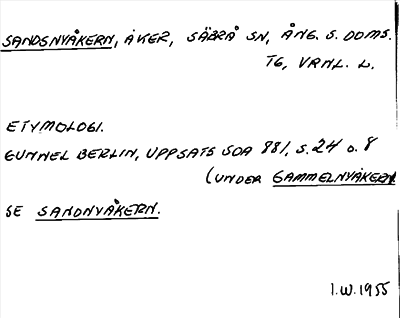 SANDSNYÅKERN, ÅKER, SÄBRÅ SN, ÅNG. S. DOMS.
TG, VRNL. L.
ETYMOLOGI.
GUNNEL BERLIN, UPPSATS SOA 881, S. 24 O. 8
(UNDER GAMMELNYÅKERN
SE SANDNYÅKERN.
I.W. 1955